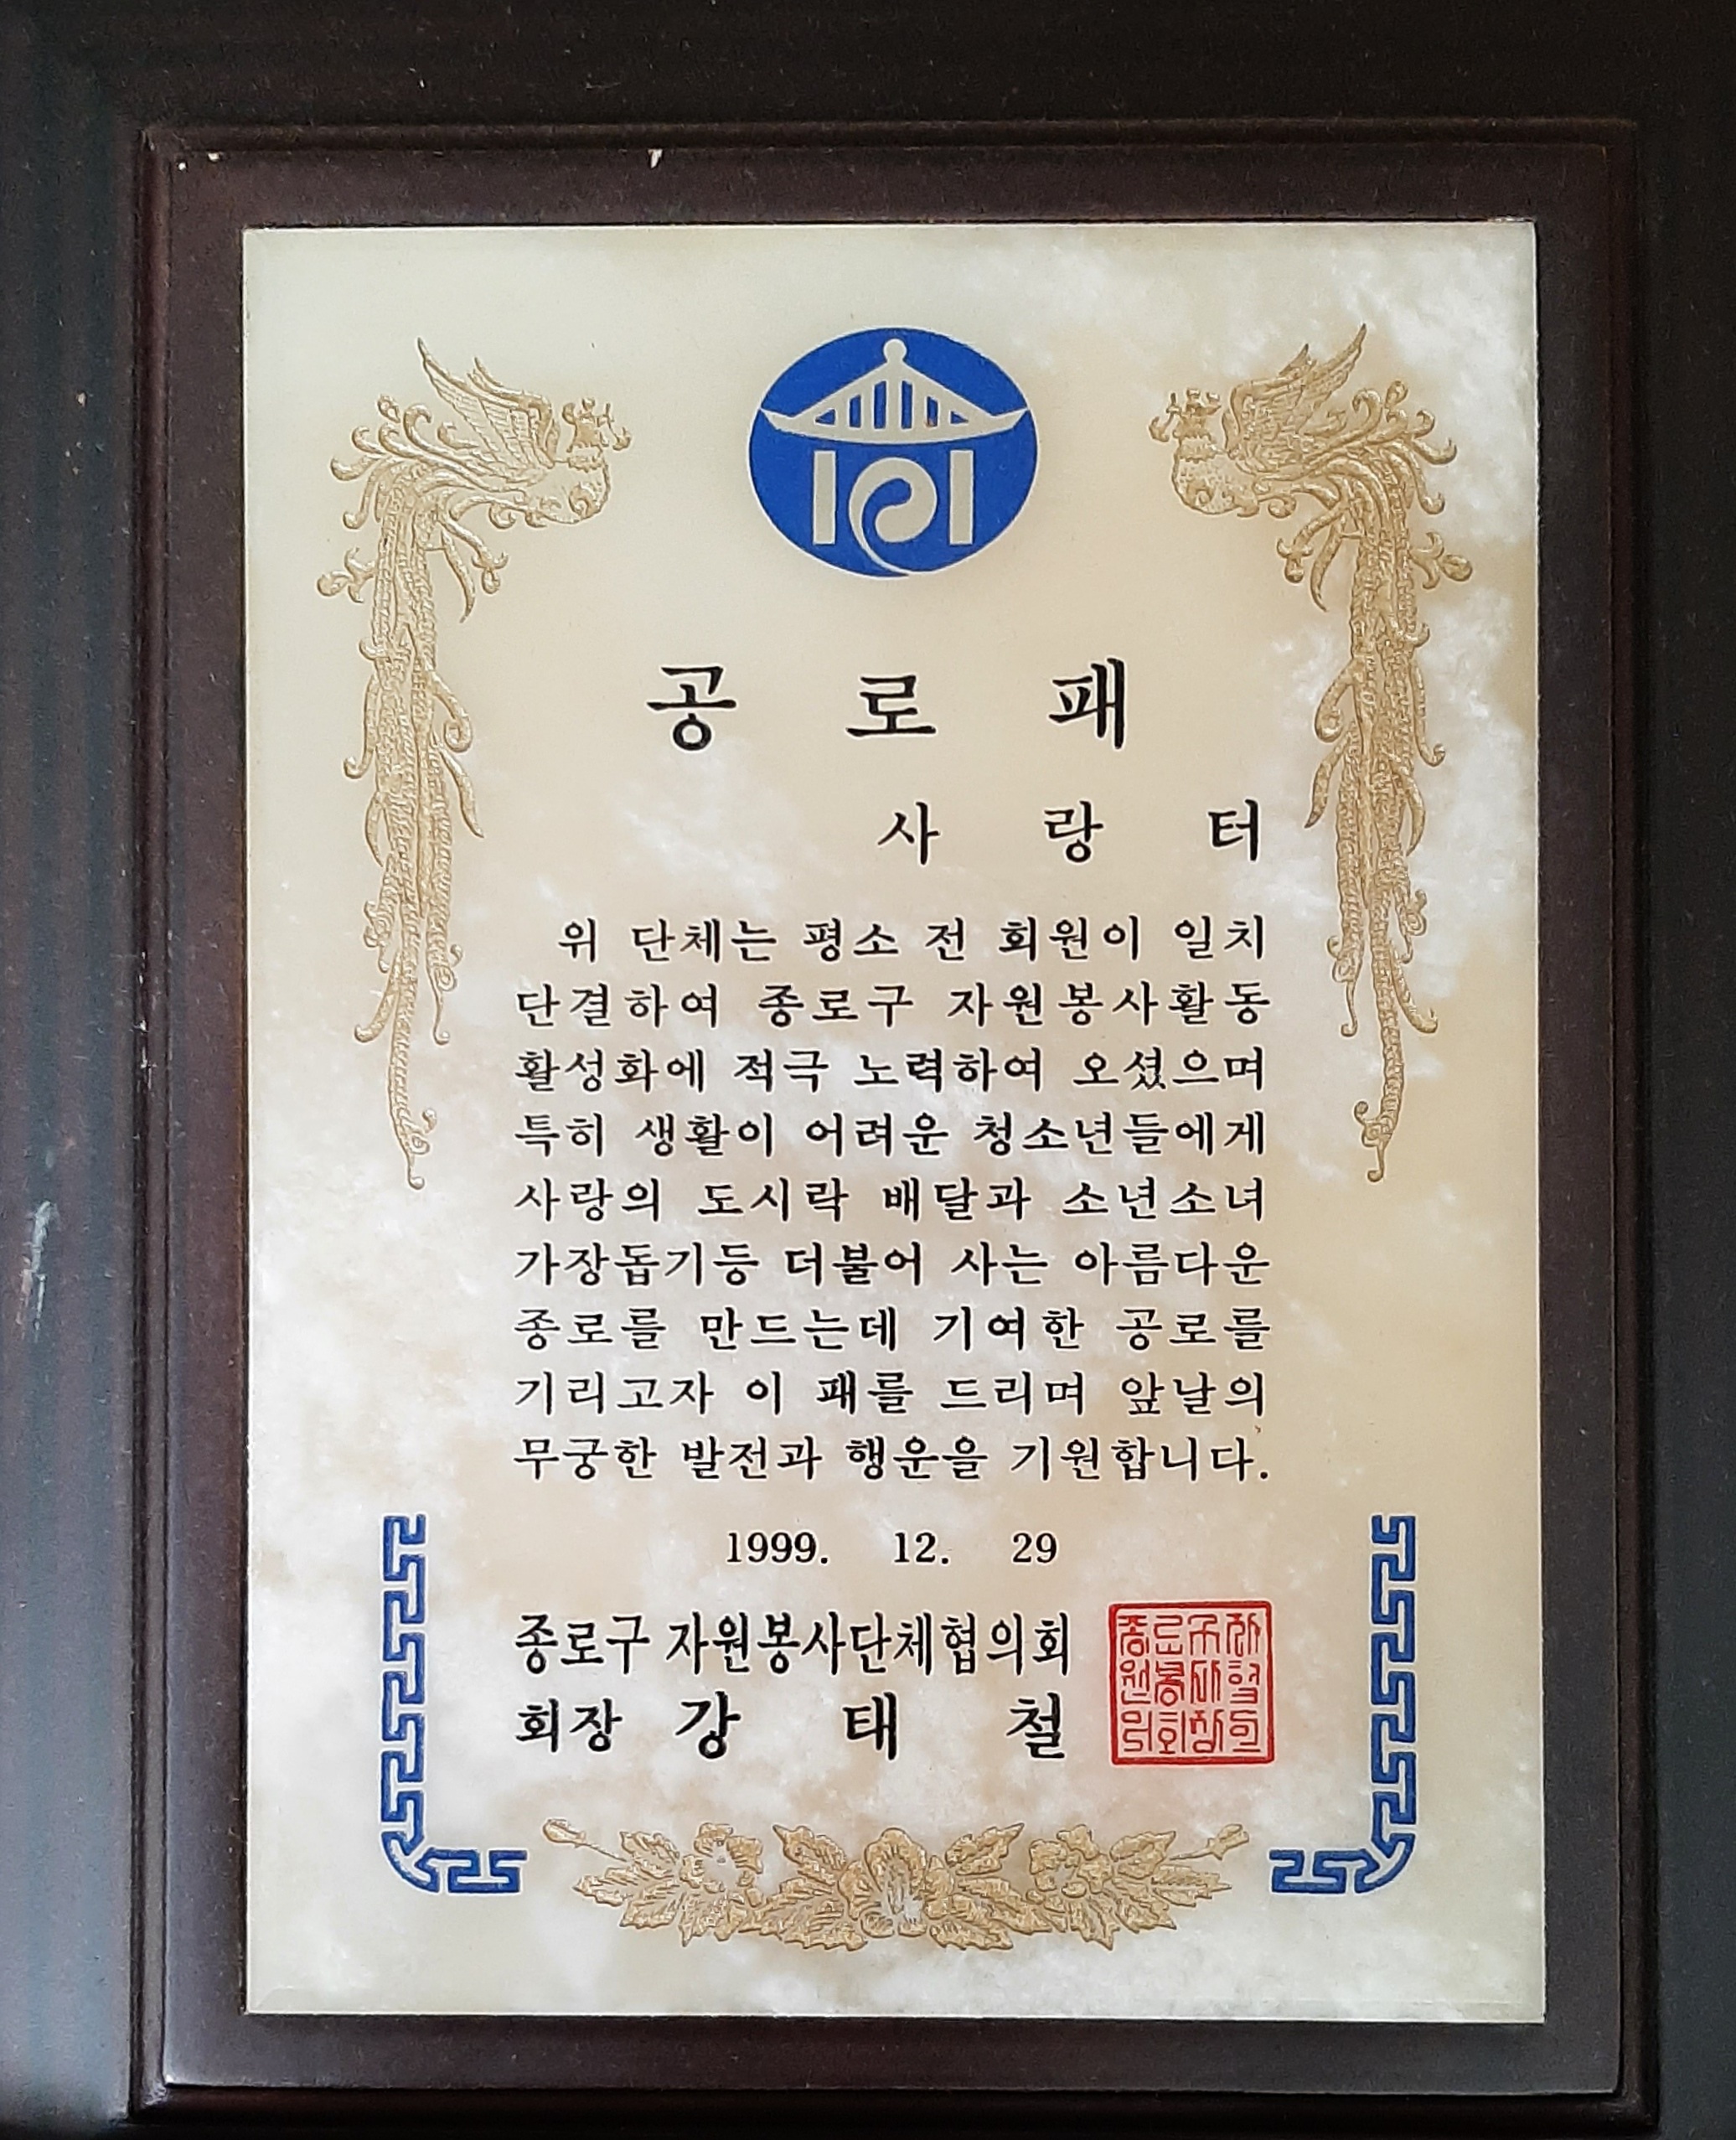 공 로 패
사 랑 터
위 단체는 평소 전 회원이 일치
단결하여 종로구 자원봉사활동
활성화에 적극 노력하여 오셨으며
특히 생활이 어려운 청소년들에게
사랑의 도시락 배달과 소년소녀
가장돕기등 더불어 사는 아름다운
종로를 만드는데 기여한 공로를
기리고자 이 패를 드리며 앞날의
무궁한 발전과 행운을 기원합니다.
1999. 12. 29
종로구 자원봉사단체협의회
회장 강 태 철